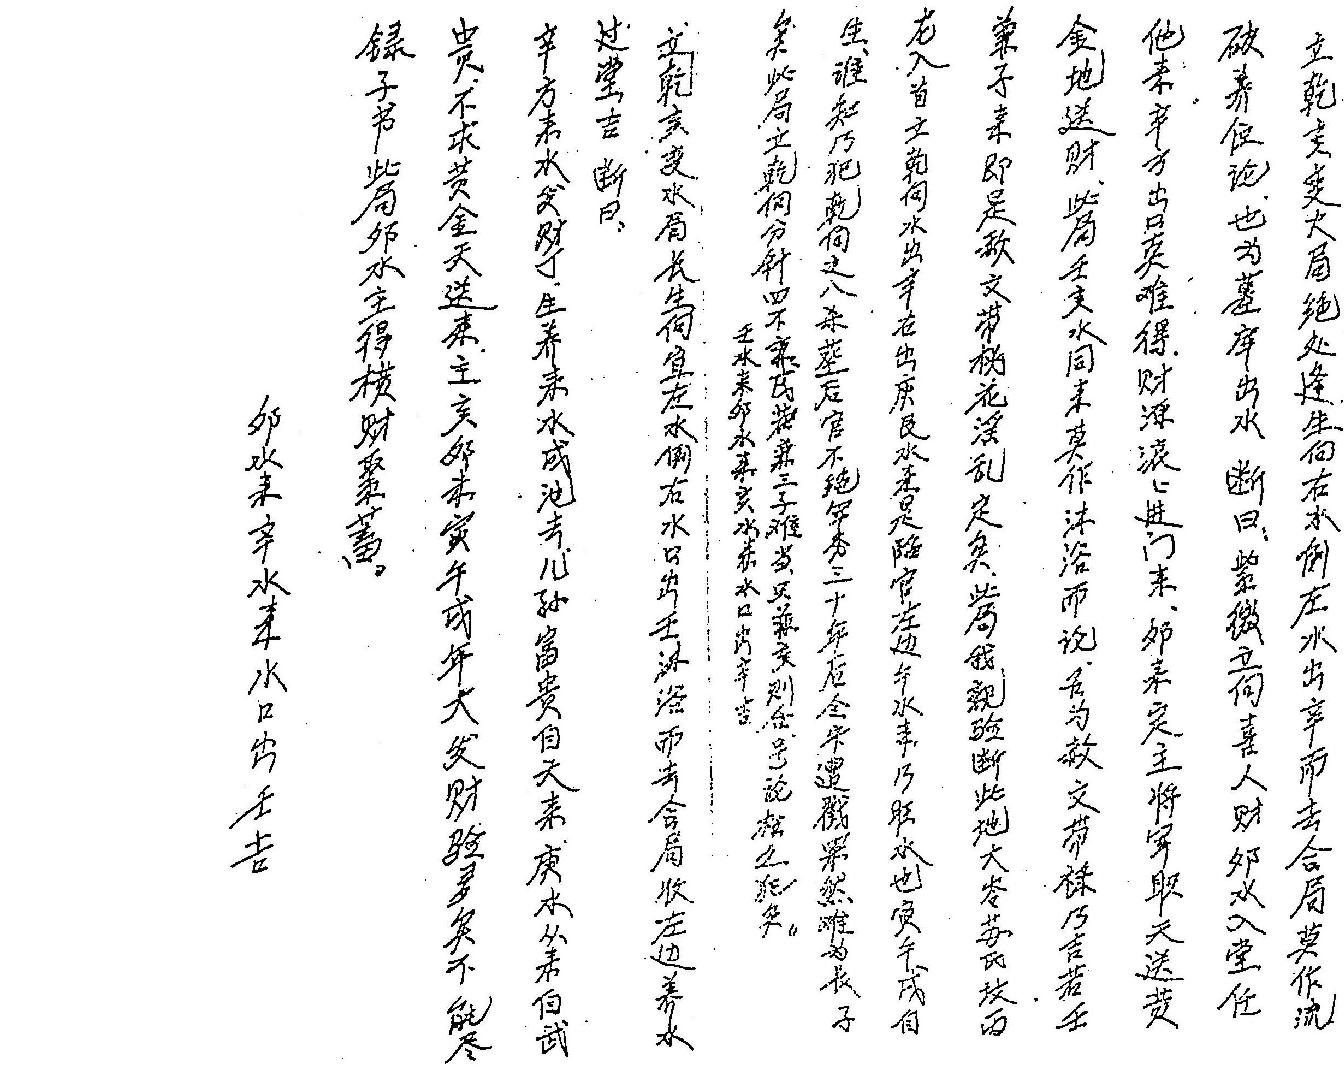 立乾亥变火局绝处逢生向右水倒左水出辛而去合局莫作流
破养位论也为墓库出水 断曰：紫微立向喜人财卯水入堂任
他来辛方出口莫难得财源滚々进门来、卯来定主将军职天送黄
金地送财此局壬亥水同来莫作沐浴而论名为赦文带禄乃吉若壬
兼子来即是赦文带桃花淫乱定矣、此局我亲验断此地大岑苏氏坟西
龙入首立乾向水出辛右出庚艮水来是临官左边午水来乃旺水也寅午戌自
生、谁知乃犯乾向之八杀葬后官不绝 三十年后全家遭戮果然难为长子
矣此局立乾向分针四不兼 兼三子难当只兼亥则合 论 犯矣。
壬水来卯水来亥水来水口出辛吉
立乾亥变水局长生向宜左水倒右水口出壬沐浴而去合局收左边养水
过堂吉 断曰、
辛方来水发财丁生养来水成池去儿孙富贵自天来庚水从来自武
贵、不求黄金天送来、主亥卯未寅午戌年大发财验多矣不能尽
录子书此局卯水主得横财聚蓄。
卯水来辛水来水口出壬吉